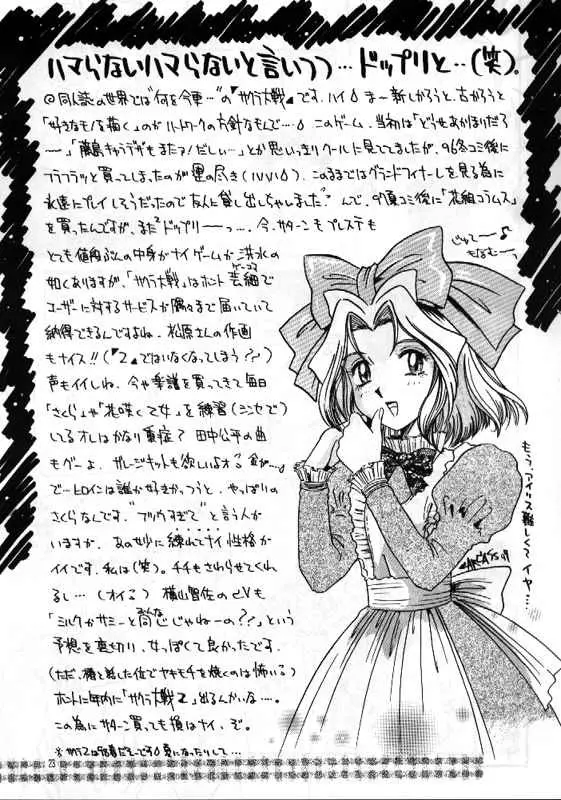 ハマらないハマらないと言いつつ…ドップリと‥(笑)。
◎同人誌の世界では“何を今更…”の『サクラ大戦』です、ハイ◊ ま〜新しかろうと、古かろうと
「好きなモノを描く」のが の方針なもんで…◊ このゲーム、当初は「どうせあかほりだろ
〜」「藤島キャラデザもまたァ!だしィ…」とか思いっきりクールに見てましたが、96冬コミ後に
フラフラッと買ってしまったのが運の尽き このままではグランドフィナーレを見る為に
永遠にプレイしそうだったので友人に貸し出しちゃいました んで、97夏コミ後に「花組コラムス」
を買ったんですが、またドップリ――っ…。今、サターンもプレステも
とても値段ぶんの中身がナイゲームが洪水の
如くありますが、「サクラ大戦」はホント芸細で
ユーザーに対するサービスが隅々まで届いていて
納得できるんですよね、松原さんの作画
もナイス!!(『2』ではいなくなってしまう??)
声もイイしね、今や楽譜を買ってきて毎日
「さくら」や「花咲く乙女」を練習(シンセで)
してるオレはかなり重症? 田中公平の曲
もグーよ、ガレージキットも欲しいよォ 金が…◊
で…ヒロインは誰が好きかっつうと、やっぱりの
さくらなんです。“フツウすぎて”と言う人が
いますが、あの妙に練れてナイ性格が
イイです、私は(笑)。チチもさわらせてくれ
るし…(オイ) 横山智佐のCVも
「ミルクがサミーと同じじゃねーの??」という
予想を裏切り、女っぽくて良かったです。
(ただ、椿と話した位でヤキモチを焼くのは怖いゐ)
ホントに年内に「サクラ大戦2」出るんかいな……。
この為にサターン買っても損はナイ、ぞ。
じゅてーーむ♪
もなむーーっ
もう、アイリス難しくてイヤ…
23